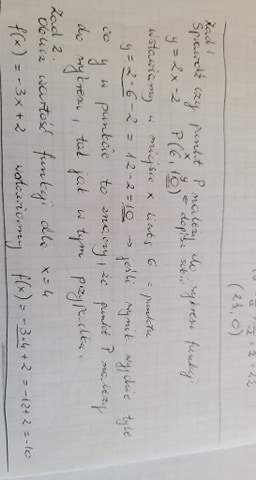 Zad 1
Sprawdź czy punkt P należy do wykresu funkcji
y = 2x - 2 P(6, 10) x y ← dopisz sobie
wstawiamy w miejsce x liczbę 6 z punktu
y = 2·6 - 2 = 12 - 2 = 10 → jeśli wynik wyjdzie tyle
co y w punkcie to znaczy, że punkt P należy
do wykresu, tak jak w tym przypadku.
Zad 2.
Oblicz wartość funkcji dla x = 4
f(x) = -3x + 2 wstawiamy f(x) = -3·4 + 2 = -12 + 2 = -10
(23, 0)